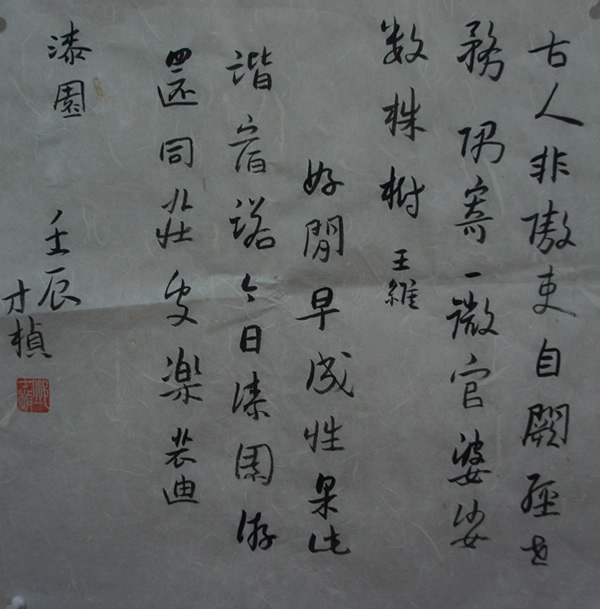 古人非傲吏自闕經世
務偶寄一微官婆娑
数株樹 王維
好閒早成性果此
諧宿諾今日漆園游
還同莊叟楽 裴迪
漆園 壬辰
才楨